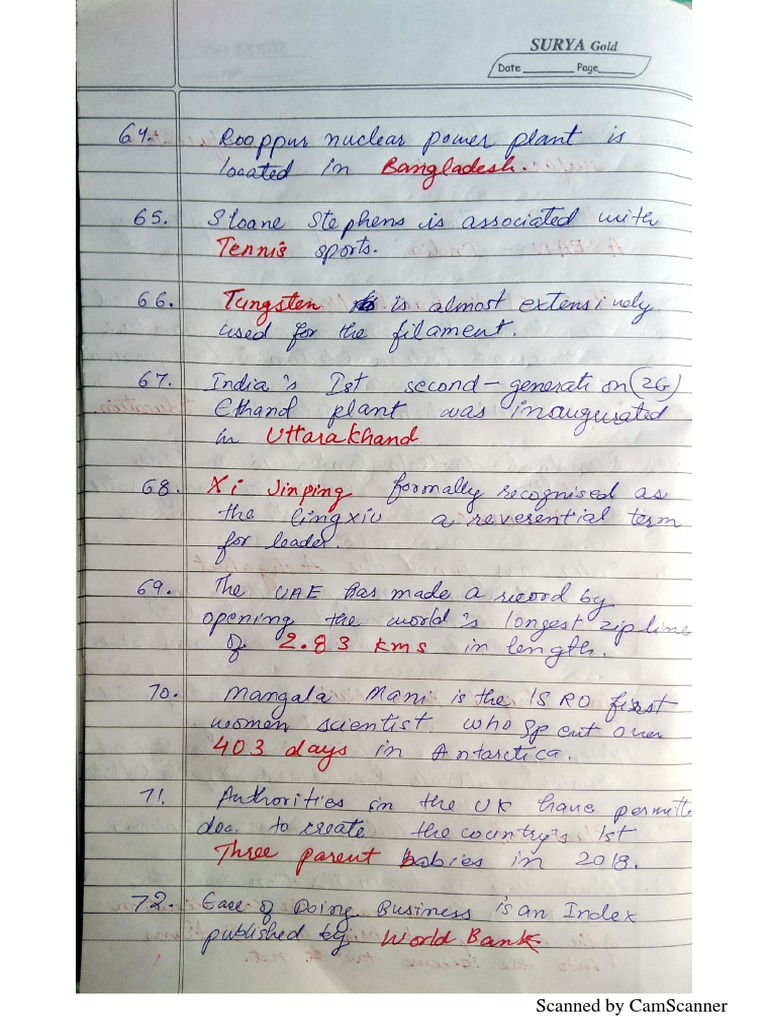 SURYA Gold
Date Page
64. Rooppur nuclear power plant is
located in Bangladesh.
65. Sloane Stephens is associated with
Tennis sports.
66. Tungsten is almost extensively
used for the filament.
67. India's Ist second-generation (2G)
Ethand plant was inaugurated
in Uttarakhand
68. Xi Jinping formally recognised as
the lingxiu a reverential term
for leader.
69. The UAE has made a record by
opening the world's longest zipline
of 2.83 kms in length.
70. Mangala Mani is the ISRO first
women scientist who spent over
403 days in Antarctica.
71. Authorities in the UK have permitte
doc. to create the country's 1st
Three parent babies in 2018.
72. Ease of Doing Business is an Index
published by World Bank
Scanned by CamScanner